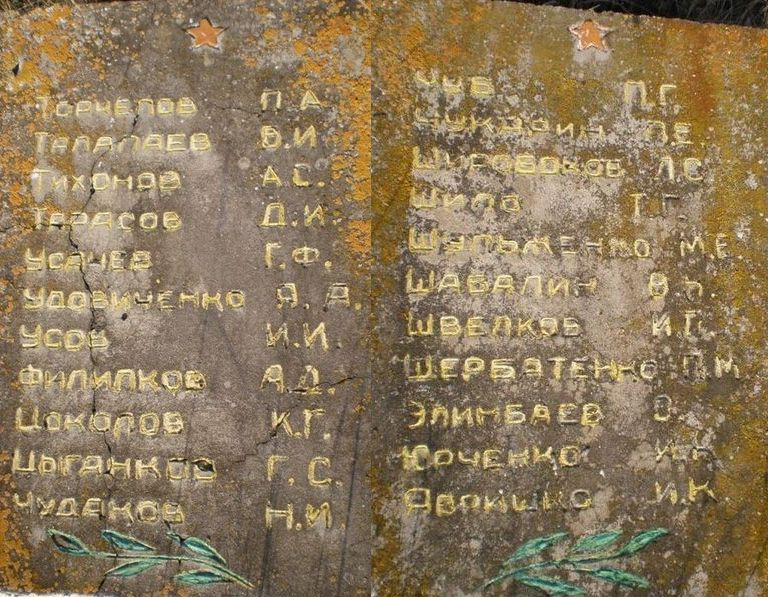 Торчепов П.А
Талалаев В.И
Тихонов А.С.
Тарасов Д.И.
Усачев Г.Ф.
Удовиченко Я.А.
Усов И.И.
Филипков А.Д.
Цоколов К.Г.
Цыганков Г.С.
Чудаков Н.И.
Чуб П.Г.
Чукарин П.Е.
Широбоков Л.С
Шило Т.Г.
Шульженко М.Е
Шабалин
Швелков И.П.
Щербатенко П.М
Элимбаев
Юрченко И.К
Явокишко И.К